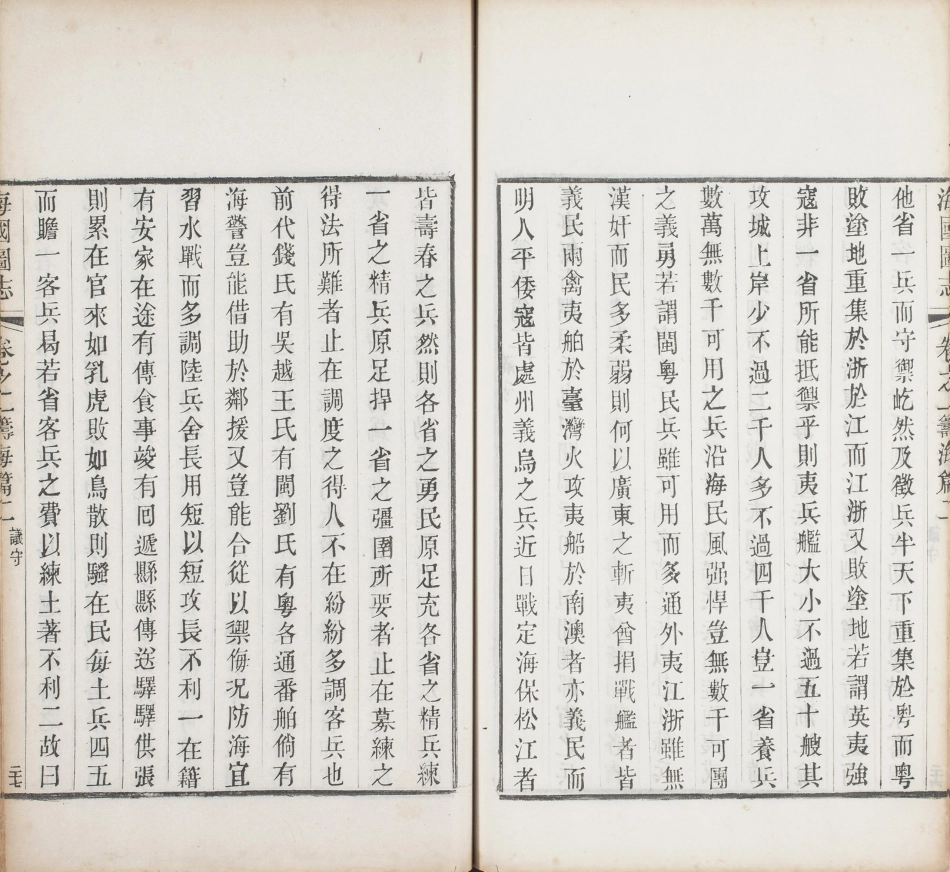 海國圖志
卷之二 籌海篇二
他省一兵而守禦屹然及徵兵半天下重集於粤而粤
敗塗地重集於浙於江而江浙又敗塗地若謂英夷強
寇非一省所能抵禦乎則夷兵艦大小不過五十艘其
攻城上岸少不過二千人多不過四千人豈一省養兵
數萬無數千可用之兵沿海民風强悍豈無數千可團
之義勇若謂閩粵民兵雖可用而多通外夷江浙雖無
漢奸而民多柔弱則何以廣東之斬夷酋捐戰艦者皆
義民兩禽夷舶於臺灣火攻夷船於南澳者亦義民而
明人平倭寇皆處州義烏之兵近日戰定海保松江者
皆壽春之兵然則各省之勇民原足充各省之精兵練
一省之精兵原足捍一省之彊圉所要者止在募練之
得法所難者止在調度之得人不在紛紛多調客兵也
前代錢氏有吳越王氏有閩劉氏有粵各通番舶倘有
海警豈能借助於鄰援又豈能合從以禦侮况防海宜
習水戰而多調陸兵舍長用短以短攻長不利一在籍
有安家在途有傳食事竣有囘遞縣縣傳送驛驛供張
則累在官來如乳虎敗如鳥散則騷在民每土兵四五
而贍一客兵曷若省客兵之費以練土著不利二故曰
海國圖志
卷之二 籌海篇二 議守
二七